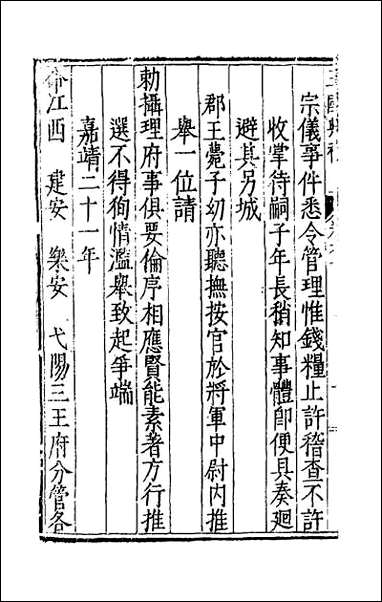 宗儀事件悉令管理惟錢糧止許稽查不許
收掌待嗣子年長稍知事體即便具奏廻
避其另城
郡王薨子幼亦聽撫按官於將軍中尉内推
舉一位請
勅攝理府事俱要倫序相應賢能素著方行推
選不得狥情濫舉致起爭端
嘉靖二十一年
命江西 建安 樂安 弋陽三王府分管各